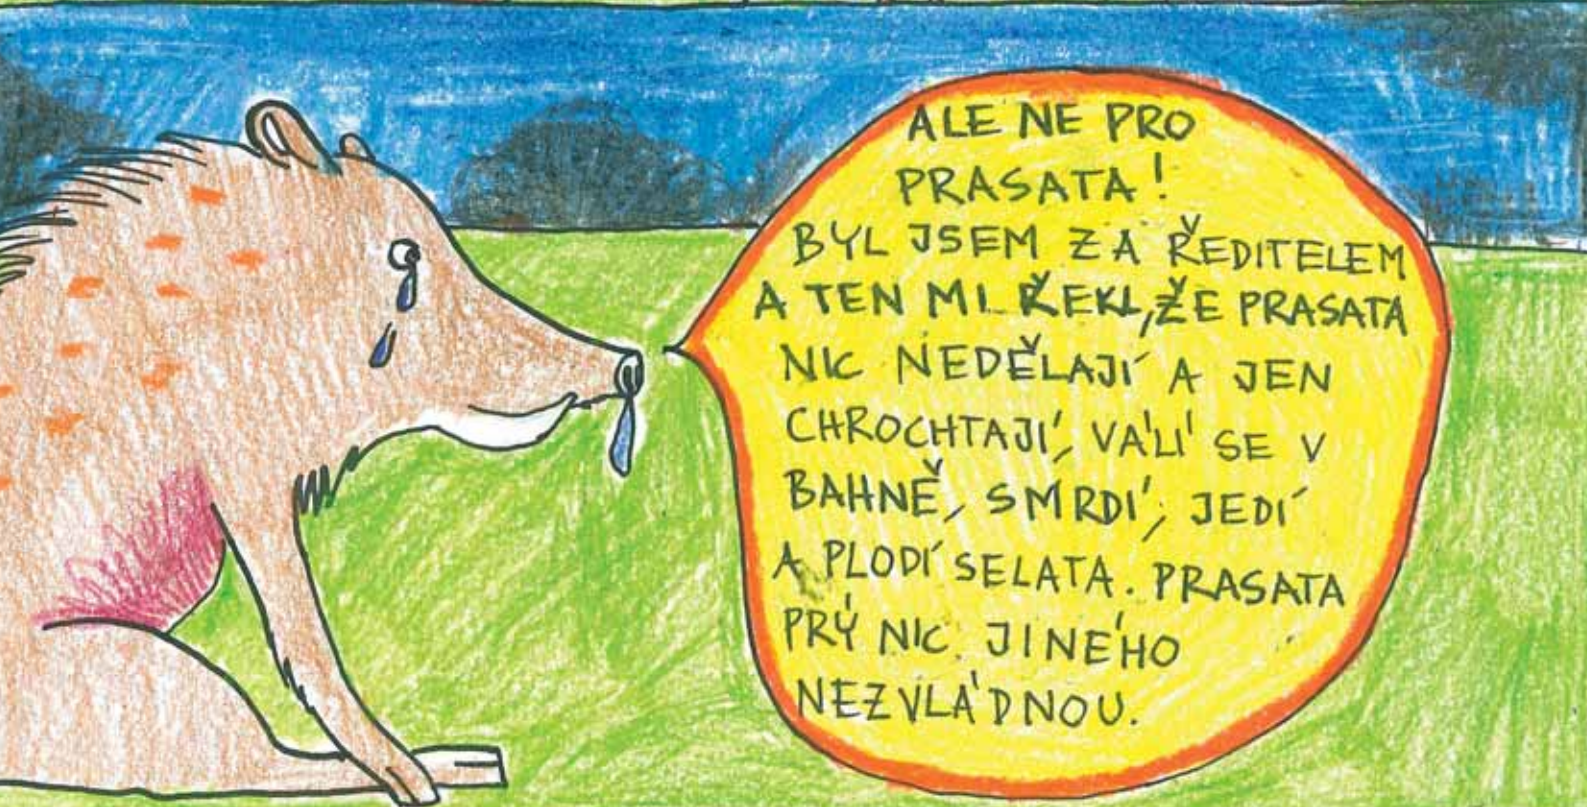 ALE NE PRO
PRASATA!
BYL JSEM ZA ŘEDITELEM
A TEN MI ŘEKL, ŽE PRASATA
NIC NEDĚLAJÍ A JEN
CHROCHTAJÍ, VÁLÍ SE V
BAHNĚ, SMRDÍ, JEDÍ
A PLODÍ SELATA. PRASATA
PRÝ NIC JINÉHO
NEZVLÁDNOU.